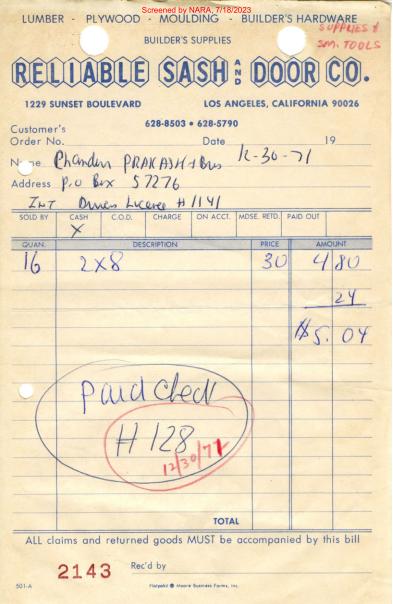 Screened by NARA, 7/18/2023
LUMBER - PLYWOOD - MOULDING - BUILDER'S HARDWARE
SUPPLIES &
SM. TOOLS
BUILDER'S SUPPLIES
RELIABLE SASH AND DOOR CO.
1229 SUNSET BOULEVARD LOS ANGELES, CALIFORNIA 90026
628-8503 • 628-5790
Customer's
Order No. Date 19
Name Chander PRAKASH & Bros 12-30-71
Address P.O Box 57276
INT Drivers H 1141
SOLD BY CASH C.O.D. CHARGE ON ACCT. MDSE. RETD. PAID OUT
X
QUAN. DESCRIPTION PRICE AMOUNT
16 2x8 30 4 80
24
$5. 04
Paid check
# 128
12/30/71
TOTAL
ALL claims and returned goods MUST be accompanied by this bill
2143 Rec'd by
501-A Flatpakit Moore Business Forms, Inc.